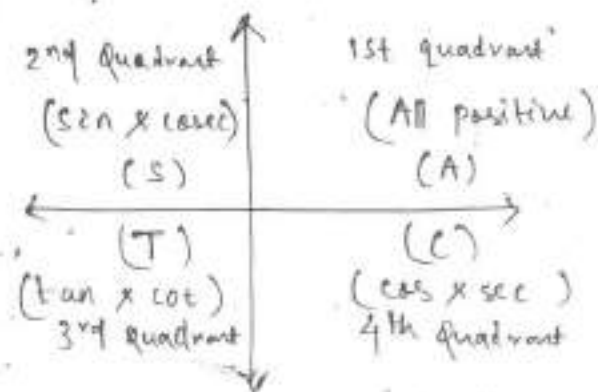 2nd Quadrant
(sin & cosec)
(S)
1st quadrant
(All positive)
(A)
(T)
(tan & cot)
3rd Quadrant
(C)
(cos & sec)
4th Quadrant